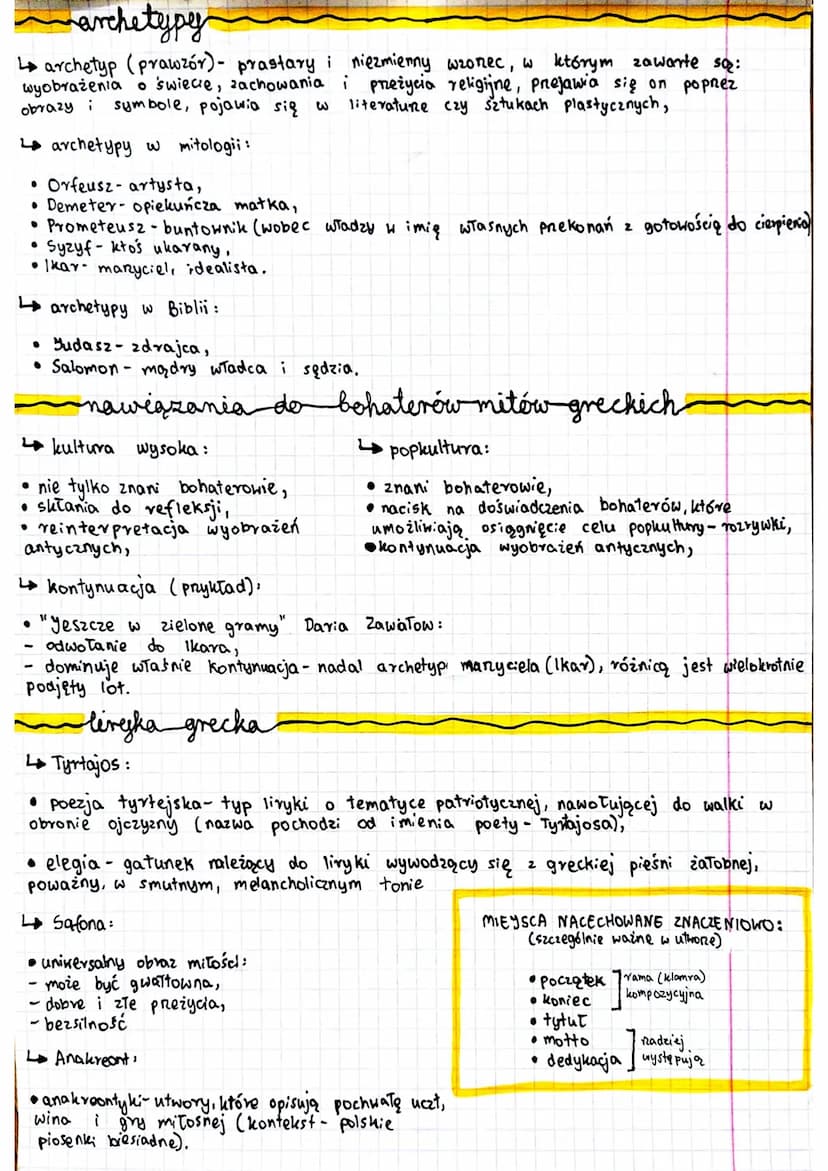 archetypy
↳ archetyp (prawzór)- prastary i niezmienny wzorzec, w którym zawarte są:
wyobrażenia o świecie, zachowania i przeżycia religijne, przejawia się on poprzez
obrazy i symbole, pojawia się w literaturze czy sztukach plastycznych,
↳ archetypy w mitologii:
• Orfeusz- artysta,
• Demeter- opiekuńcza matka,
• Prometeusz - buntownik (wobec władzy w imię własnych przekonań z gotowością do cierpienia)
• Syzyf- ktoś ukarany,
• Ikar- marzyciel, idealista.
↳ archetypy w Biblii:
• Judasz- zdrajca,
• Salomon - mądry władca i sędzia.
nawiązania do bohaterów mitów greckich
↳ kultura wysoka:
• nie tylko znani bohaterowie,
• skłania do refleksji,
• reinterpretacja wyobrażeń
antycznych,
↳ popkultura:
• znani bohaterowie,
• nacisk na doświadczenia bohaterów, które
umożliwiają osiągnięcie celu popkultury- rozrywki,
• kontynuacja wyobrażeń antycznych,
↳ kontynuacja (przykład):
• "Jeszcze w zielone gramy" Daria Zawiałow:
- odwołanie do Ikara,
- dominuje właśnie kontynuacja- nadal archetyp marzyciela (Ikar), różnicą jest wielokrotnie
podjęty lot.
liryka grecka
↳ Tyrtajos:
• poezja tyrtejska- typ liryki o tematyce patriotycznej, nawołującej do walki w
obronie ojczyzny (nazwa pochodzi od imienia poety- Tyrtajosa),
• elegia - gatunek należący do liryki wywodzący się z greckiej pieśni żałobnej,
poważny, w smutnym, melancholicznym tonie
↳ Safona:
• uniwersalny obraz miłości:
- może być gwałtowna,
- dobre i złe przeżycia,
- bezsilność
↳ Anakreont:
• anakreontyki- utwory, które opisują pochwałę uczt,
wina i gry miłosnej (kontekst- polskie
piosenki biesiadne).
MIEJSCA NACECHOWANE ZNACZENIOWO:
(szczególnie ważne w utworze)
• początek
• koniec
rama (klamra)
kompozycyjna
• tytuł
• motto
• dedykacja
rzadziej
występują